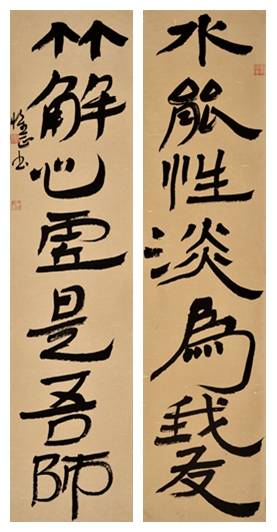 水能性淡為我友
竹解心虛是吾師